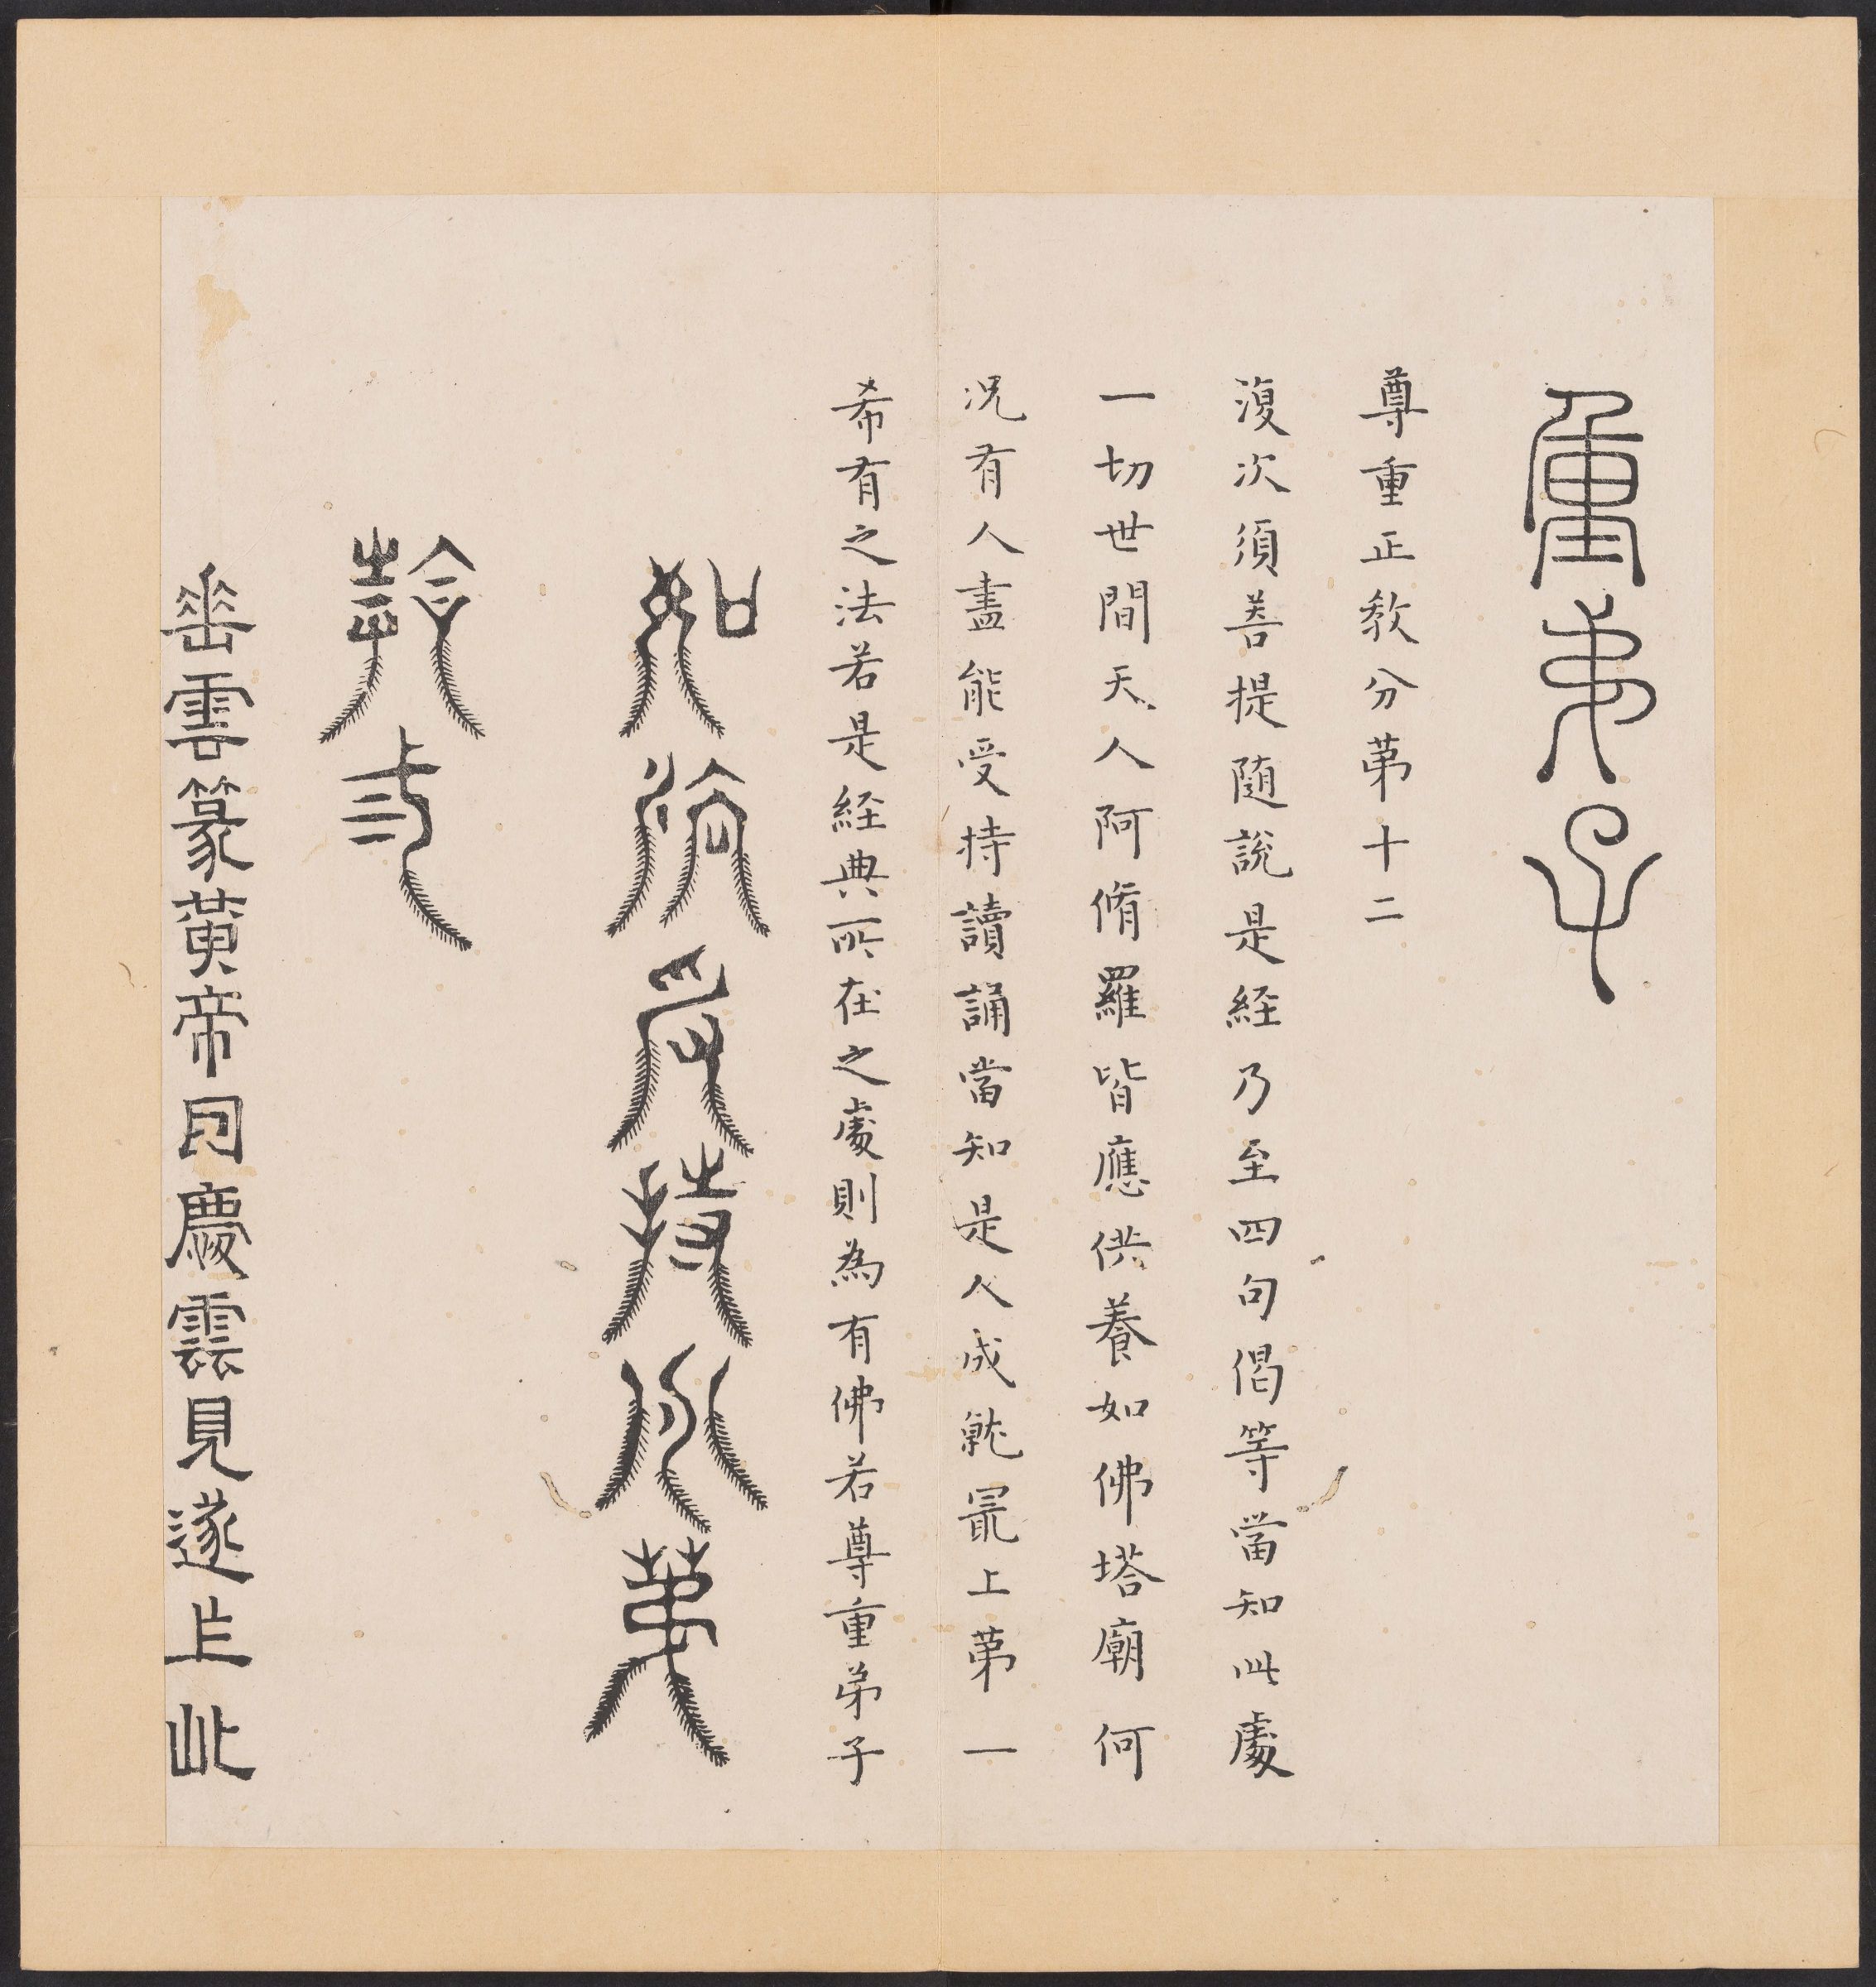 重弟子
尊重正教分第十二
復次須菩提隨說是經乃至四句偈等當知此處
一切世間天人阿脩羅皆應供養如佛塔廟何
況有人盡能受持讀誦當知是人成就㝡上第一
希有之法若是經典所在之處則為有佛若尊重弟子
如法受持分第
十三
垂雲篆黃帝因慶雲見遂作此